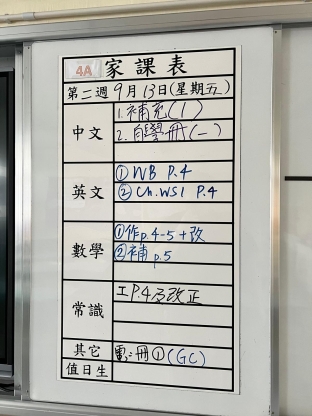 4A 家課表
第二週 9月13日(星期五)
中文
1. 補充(1)
2. 自學冊(一)
英文
① WB P.4
② Ch.WS1 P.4
數學
①作p.4-5+改
②補p.5
常識
工P.4及改正
其它
冊①(GC)
值日生